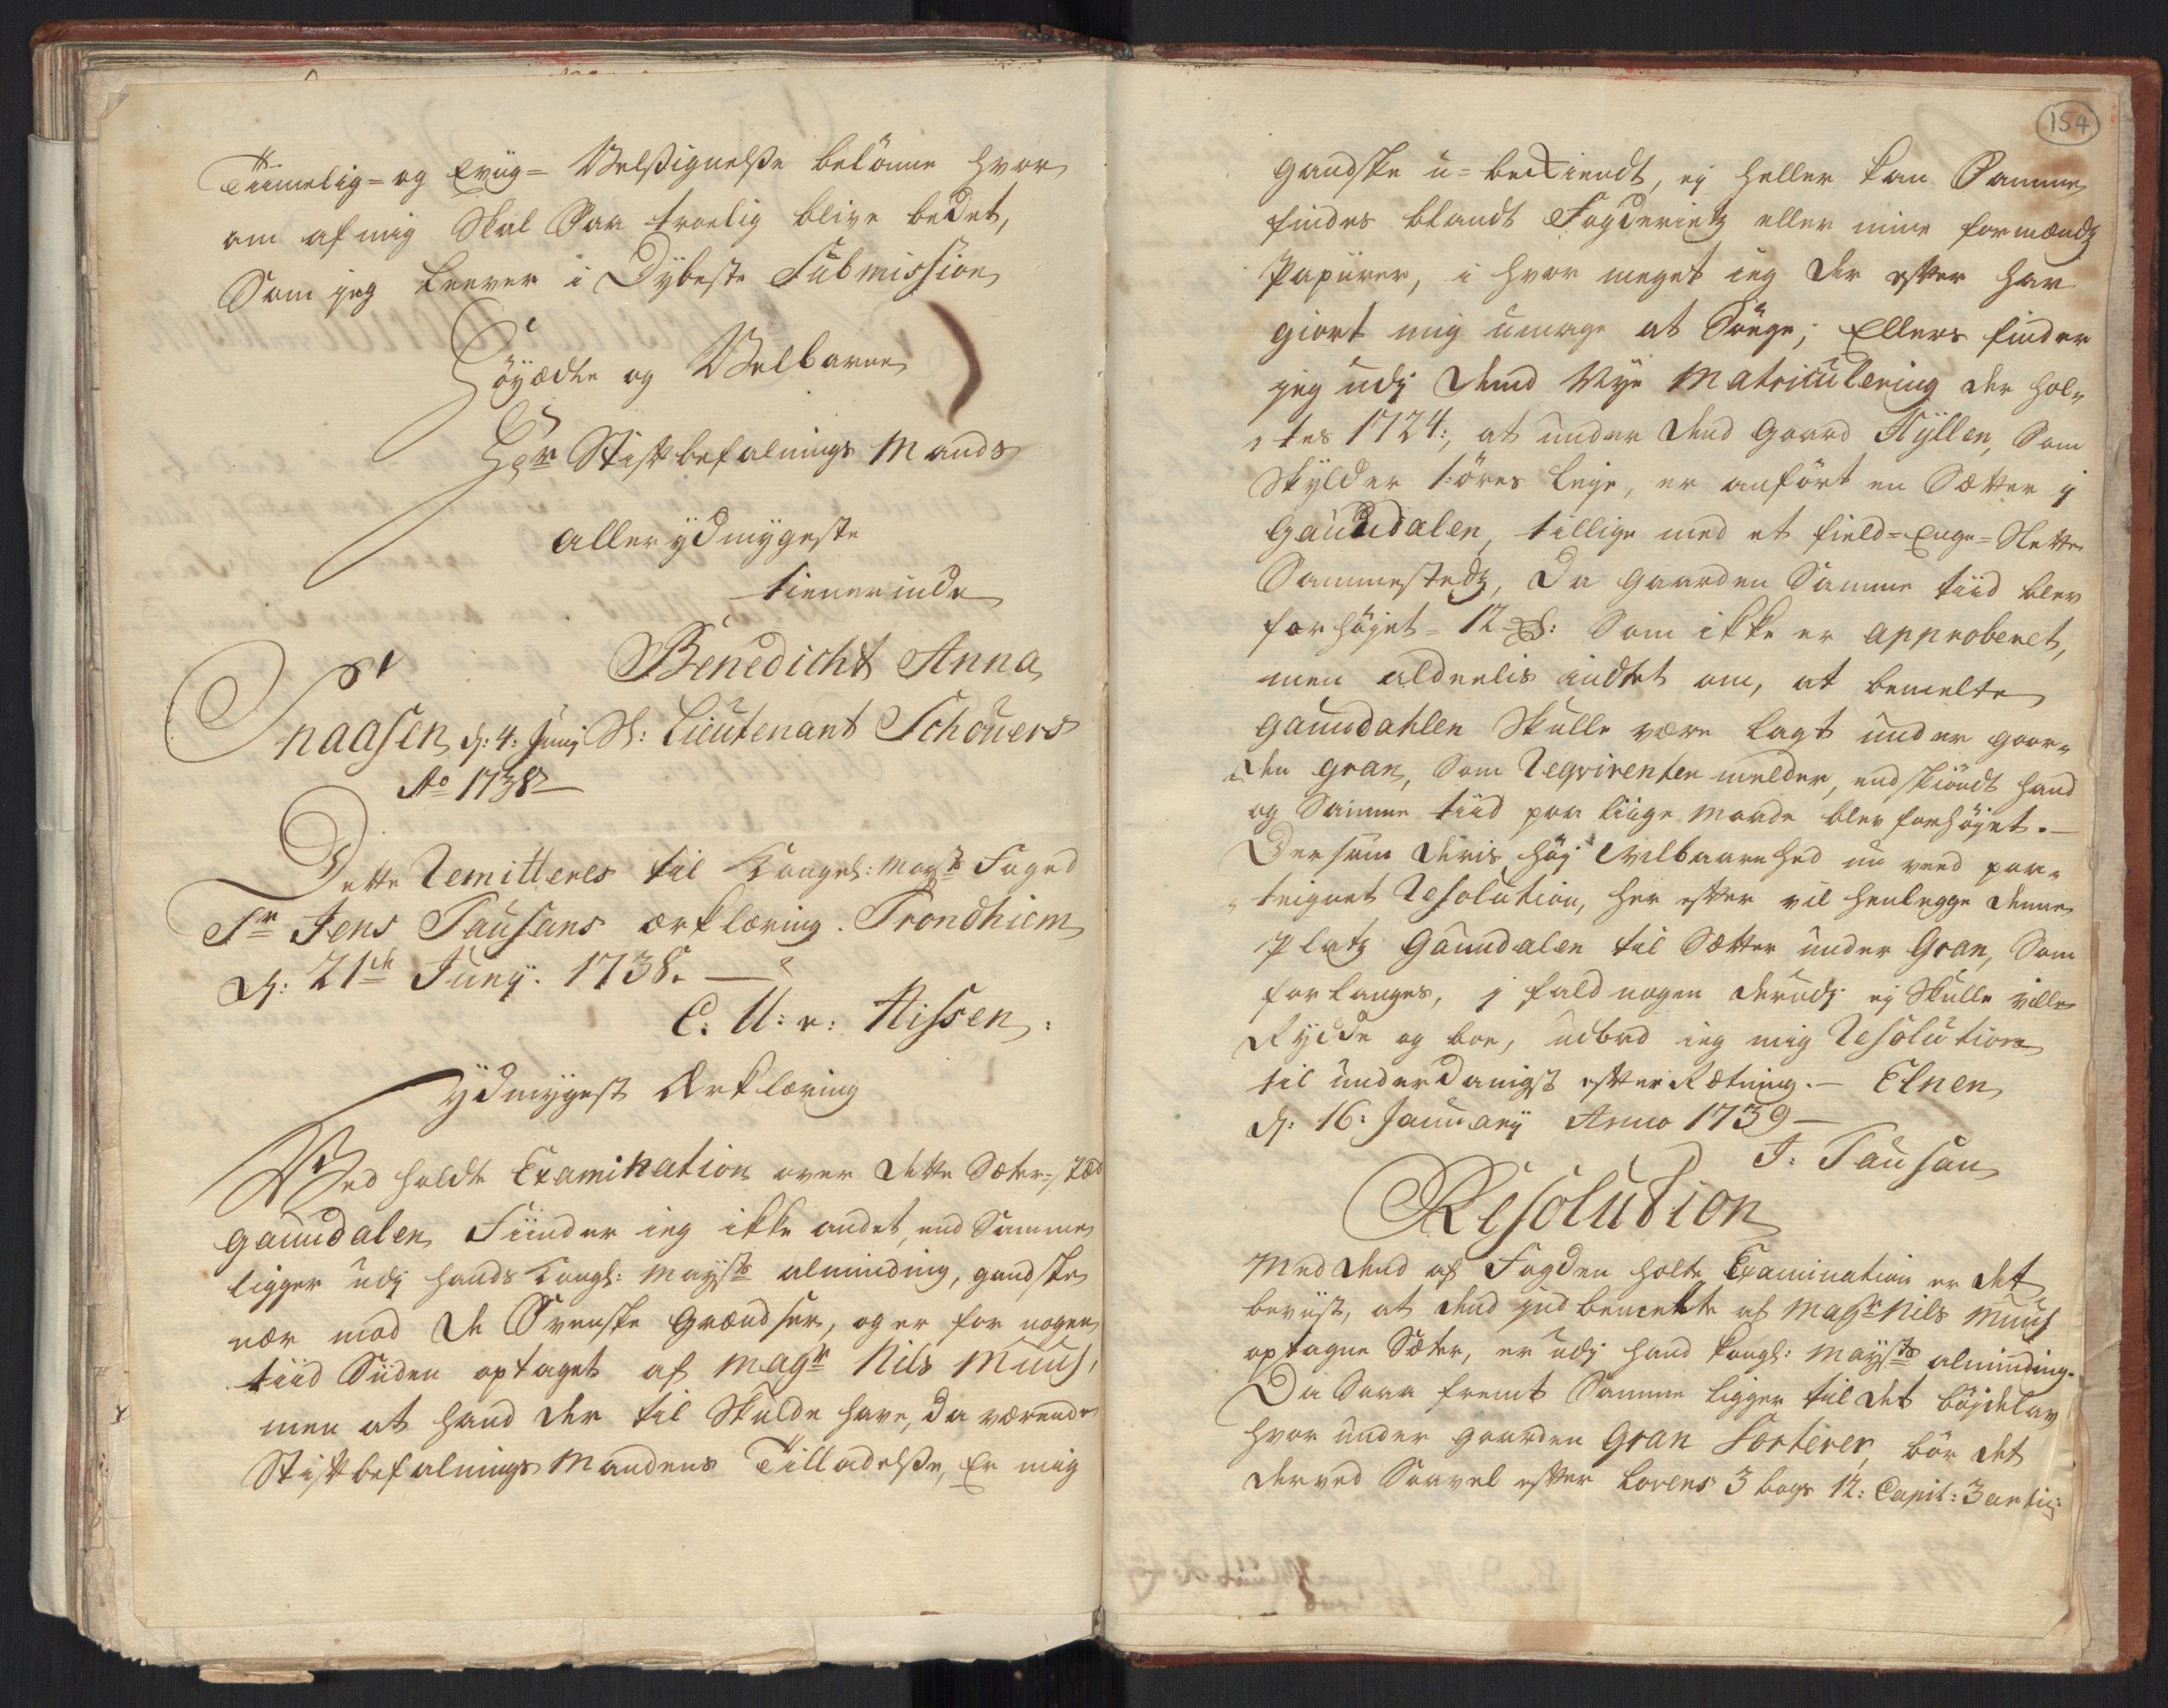 Tiimelig= og Evig= Velßignelße belönne hvor
om af mig Skal Saa troelig blive bedet,
Som jeg leever i Dybeste Submission
Höyædle og Velbaarne
Hr Stiftbefalnings Mands
allerydmygeste
tienerinde
Benedicht Anna
Snaasen d: 4: Junij Sl: Lieutenant Schouers
Ao 1738
Dette Remitteres til Kongel: Mayts Foged
Sr Jens Tausans erklæring. Trondhiem
d: 21de Juny. 1738.
C. U: v: Nissen
ydmygest Erklæring
Ved holdte Examination over dette Sæter=stæd
Gaundalen Finder ieg ikke andet, end Samme
ligger udj hands Kongl: Maysts alminding, gandske
nær mod de Svenske Grændser, og er for nogen
tiid Siiden optaget af Magr Nils Muus,
men at hand der til Skulde have, da værende
Stiftbefalnings Mandens Tilladelße, Er mig
154
gandske u=bekiendt, ej heller kan Samme
findes blandt Fogderietz eller mine formændz
Papiirer, i hvor meget ieg der efter har
giort mig umage at Söge; Ellers finder
jeg udj dend Nye Matriculering der hol-
tes 1724:, at under dend gaard Hyllen, Som
Skylder 1: öres leje, er anfört en Sætter i
Gaundalen, tillige med et field=Enge=Slette
Sammestedz, da gaarden Samme tiid blev
forhöjet= 12 : Som ikke er approberet,
men aldeelis indtet om, at bemelte
Gaundahlen Skulle være lagt under gaar-
den Gran, Som Reqvirenten melder, endskiöndt hand
og Samme tiid paa liige maade blev forhöjet.
Dersom deris höj Velbaarenhed nu veed paa-
teignet Resolution, her efter vil henlegge denne
Platz Gaundalen til Sætter under Gran, Som
forlanges, j fald nogen derudj ej Skulle ville
Rydde og boe, udbad ieg mig Resolution
til underdanigst efterRetning. Elnen
d: 16: January Anno 1739
J: Tausan
Resolution
Med dend af Fogden holte Examination er det
beviist, at dend jndbemelte af Magr Nils Muus
optagne Sæter, er udj hand Kongl: Maysts alminding.
Da Saa fremt Samme ligger til det böjdelav
hvor under gaarden Gran Sorterer, bör det
derved Saavel efter Lovens 3 bogs 12: Capit: 3 artic: